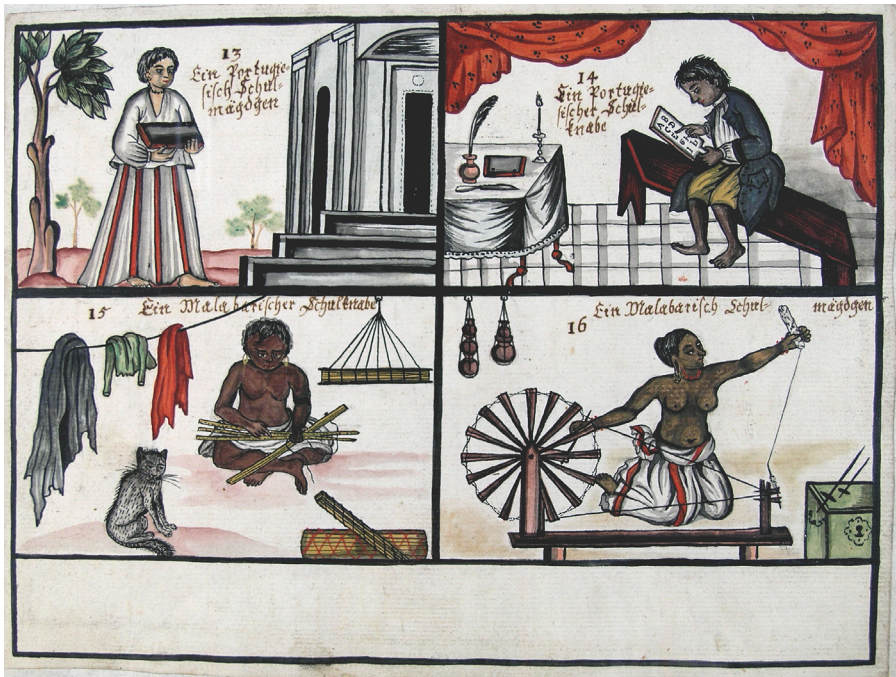 13
Ein Portugie-
sisch Schul-
mägdgen
14
Ein Portugie-
sischer Schul-
knabe
A B C D
15 Ein Malabarischer Schulknabe
16 Ein Malabarisch Schul- mägdgen